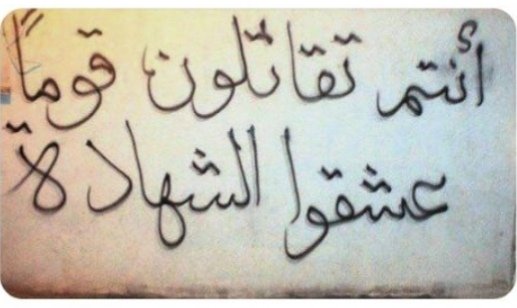 أنتم تقاتلون قوماً
عشقوا الشهادة